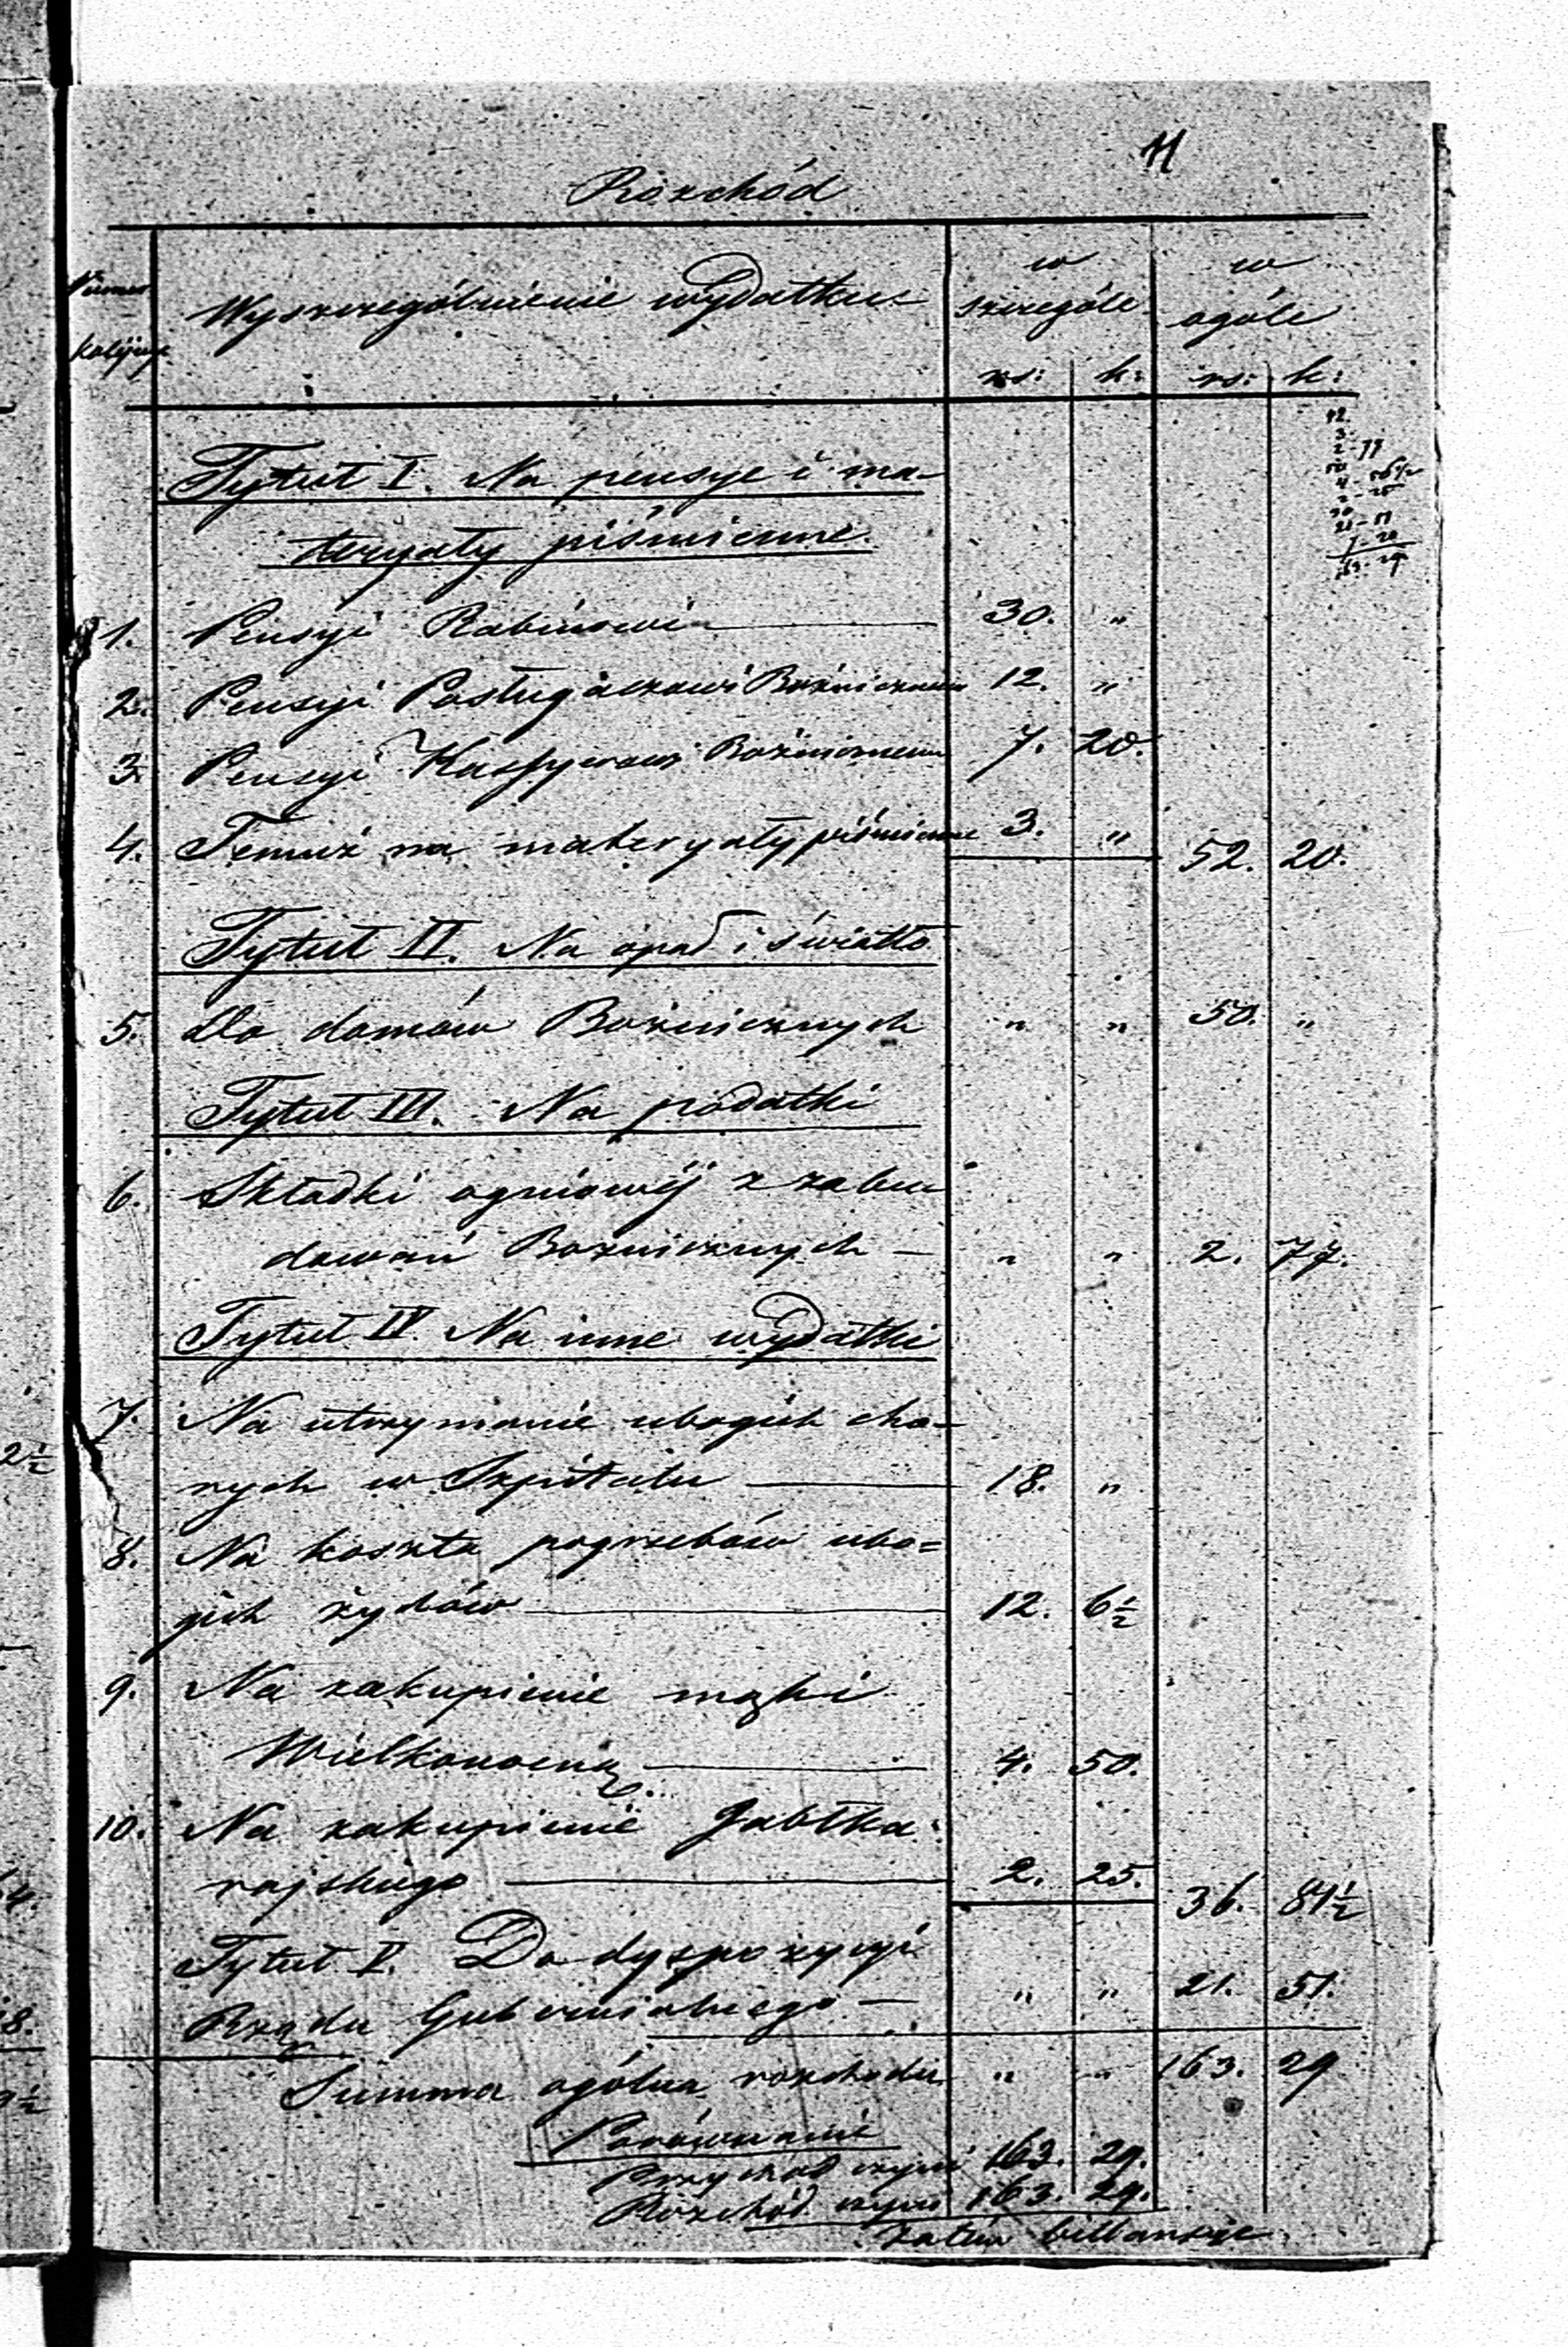 11
Rozchód
Numer
kolejny
Wyszczególnienie wydatku
w
szczególe
w
ogóle
rs: k: rs: k:
Tytuł I. Na pensye i ma-
teryały piśmienne.
1. Pensyi Rabinowi 30. "
2. Pensyi Posługaczowi Bożniczemu 12. "
3. Pensyi Kassyerowi Bożniczemu 7. 20.
4. Temuż na materyały piśmienne 3. " 52. 20.
Tytuł II. Na opał i światło
5. dla domów Bożnicznych " " 50. "
Tytuł III. Na podatki
6. Składki ogniowéj z zabu
dowań Bożnicznych — " " 2. 77.
Tytuł IV. Na inne wydatki
7. Na utrzymanie ubogich cho-
rych w Szpitalu 18. "
8. Na koszta pogrzebów ubo=
gich żydów 12. 6½
9. Na zakupienie mąki
Wielkanocną 4. 50.
10. Na zakupienie Jabłka
rajskiego 2. 25. 36. 81½
Tytuł V. Do dyspozycyi
Rządu Gubernialnego — " " 21. 51.
Summa ogólna rozchodu " " 163. 29
Porównanie
Przychód czyni 163. 29.
Rozchód czyni 163. 29.
zatem billansuje